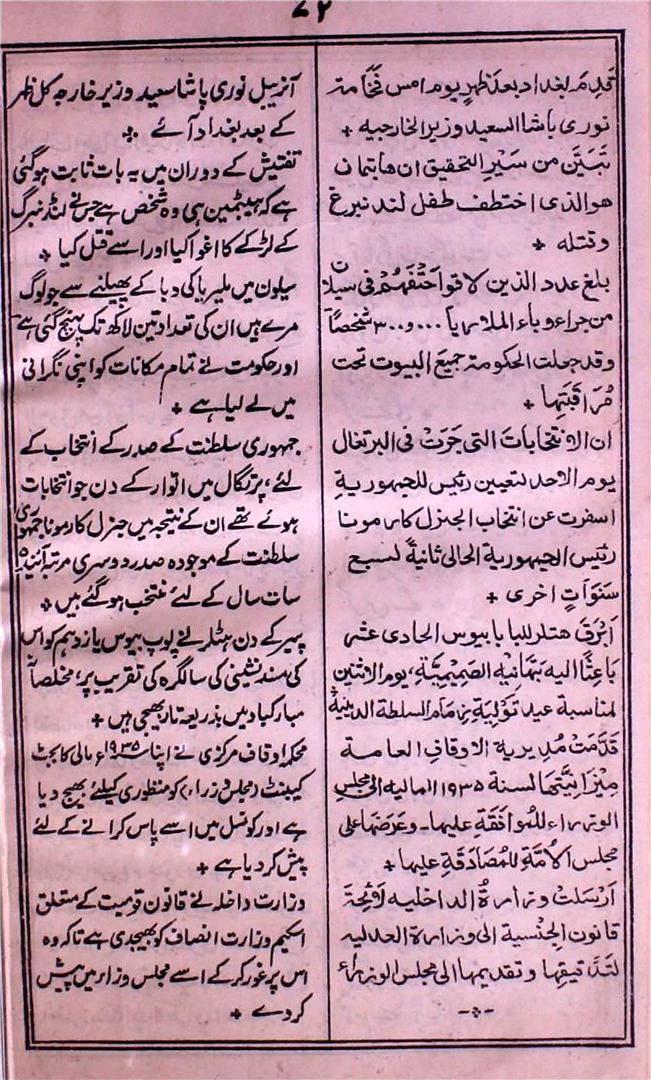 ۷۲
قَدِمَ بغداد بعدَ ظهرِ يوم امس فَخَامة
نوری باشا السعيد وزير الخارجيه ٭
تبَيَّن من سَيرِ التحقيق ان هابتمان
هو الذی اختطف طفل لند نبرغ
وقتله ٭
بلغ عدد الذين لاقوا حَتْفَهُم فی سیلان
من جراء وباء الملاریا ۳۰۰۰۰۰ شخصاً
وقد جعلت الحكومة جميعَ البيوت تحت
مُراقَبَتِها ٭
ان الانتخاباتَ التی جَرَتْ فی البرتغال
يوم الاحد لتعيين رئيس للجمهوريةِ
اسفرت عن انتخاب الجنرل کارمونا
رئيس الجمهورية الحالی ثانيةً لسبع
سَنَوَاتٍ اخری ٭
اَبْرَقَ هتلر للبابا بيوس الحادی عشر
بَاعِثًا اليه بتهانيه الصَمِيمِيَّةِ، يوم الاثنين
لمناسبة عيد تَوْلِيَةِ زمام السلطة الدينية
قَدَّمَت مُديرية الاوقافِ العامة
مِيْزَانِيَّتَها لسنة ۱۹۳۵ الماليه الی مجلسِ
الوزراء للمُوافَقَةِ عليها۔ وعَرَضَها علی
مجلس الاُمَّةِ للمُصَادَقَةِ عليها ٭
اَرْسَلَتْ وزارةُ الداخليه لَائِحَةَ
قانون الجِنْسية الی وزارة العدليه
لتَدْقيقِها وتقديمها الی مجلس الوزراء
-٭-
آنریبل نوری پاشا سعید وزیر خارجہ کل ظہر
کے بعد بغداد آئے ٭
تفتیش کے دوران میں یہ بات ثابت ہوگئی
ہے کہ ہیٹمین ہی وہ شخص ہے جس نے لنڈ نبرگ
کے لڑکے کا اغوا کیا اور اسے قتل کیا ٭
سیلون میں ملیریا کی وبا کے پھیلنے سے جو لوگ
مرے ہیں ان کی تعداد تین لاکھ تک پہنچ گئی ہے
اور حکومت نے تمام مکانات کو اپنی نگرانی
میں لے لیا ہے ٭
جمہوری سلطنت کے صدر کے انتخاب کے
لئے، پرتگال میں اتوار کے دن جو انتخابات
ہوئے تھے ان کے نتیجہ میں جنرل کارمونا جمہوری
سلطنت کے موجودہ صدر دوسری مرتبہ آئندہ
سات سال کے لئے منتخب ہو گئے ہیں ٭
پیر کے دن ہٹلر نے پوپ بیوس یازدہم کو اس
کی مسند نشینی کی سالگرہ کی تقریب پر، مخلصاً
مبارکبادیں بذریعہ تار بھیجی ہیں ٭
محکمہ اوقاف مرکزی نے اپنا ۱۹۳۵ء مالی کا بجٹ
کیبنٹ (مجلس وزراء) کو منظوری کیلئے بھیج دیا
ہے اور کونسل میں اسے پاس کرانے کے لئے
پیش کر دیا ہے ٭
وزارت داخلہ نے قانون قومیت کے متعلق
اسکیم وزارت انصاف کو بھیجدی ہے تاکہ وہ
اس پر غور کرکے اسے مجلس وزار میں پیش
کردے ٭